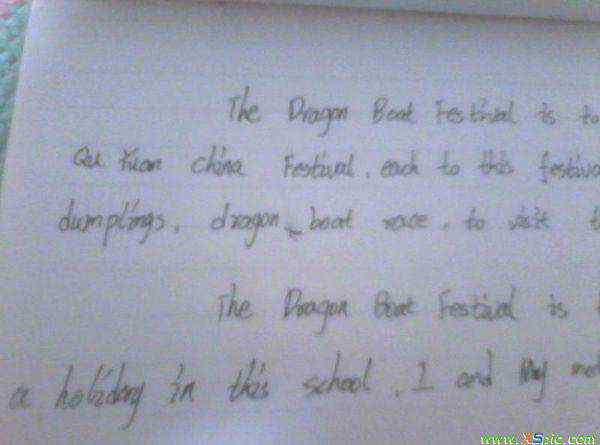 The Dragon Boat Festival is to
Qu Yuan china Festival, each to this festival
dumplings, dragon boat race, to visit
The Dragon Boat Festival is
a holiday in this school, I and my
www.XShic.com